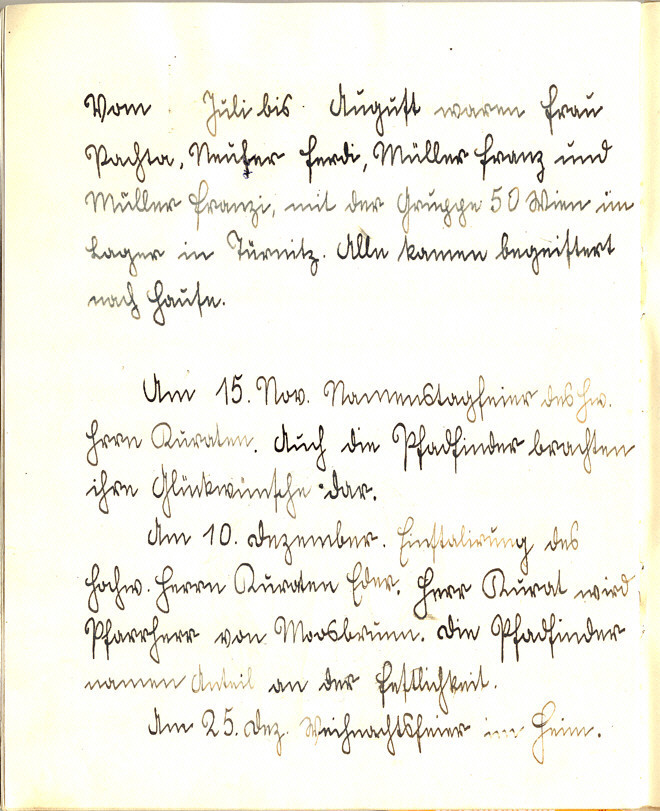 Vom Juli bis August waren Frau
Pachta, Neußer Ferdi, Müller Franz und
Müller Franzi, mit der Gruppe 50 Wien im
Lager in Türnitz. Alle kamen begeistert
nach Hause.
Am 15. Nov. Namenstagfeier des hw.
Hrrn Kuraten. Auch die Pfadfinder brachten
ihre Glückwünsche dar.
Am 10. Dezember. Einstalirung des
hochw. Herrn Kuraten Eder. Herr Kurat wird
Pfarrherr von Moosbrunn. Die Pfadfinder
namen Anteil an der Festlichkeit.
Am 25. Dez. Weihnachtsfeier im Heim.